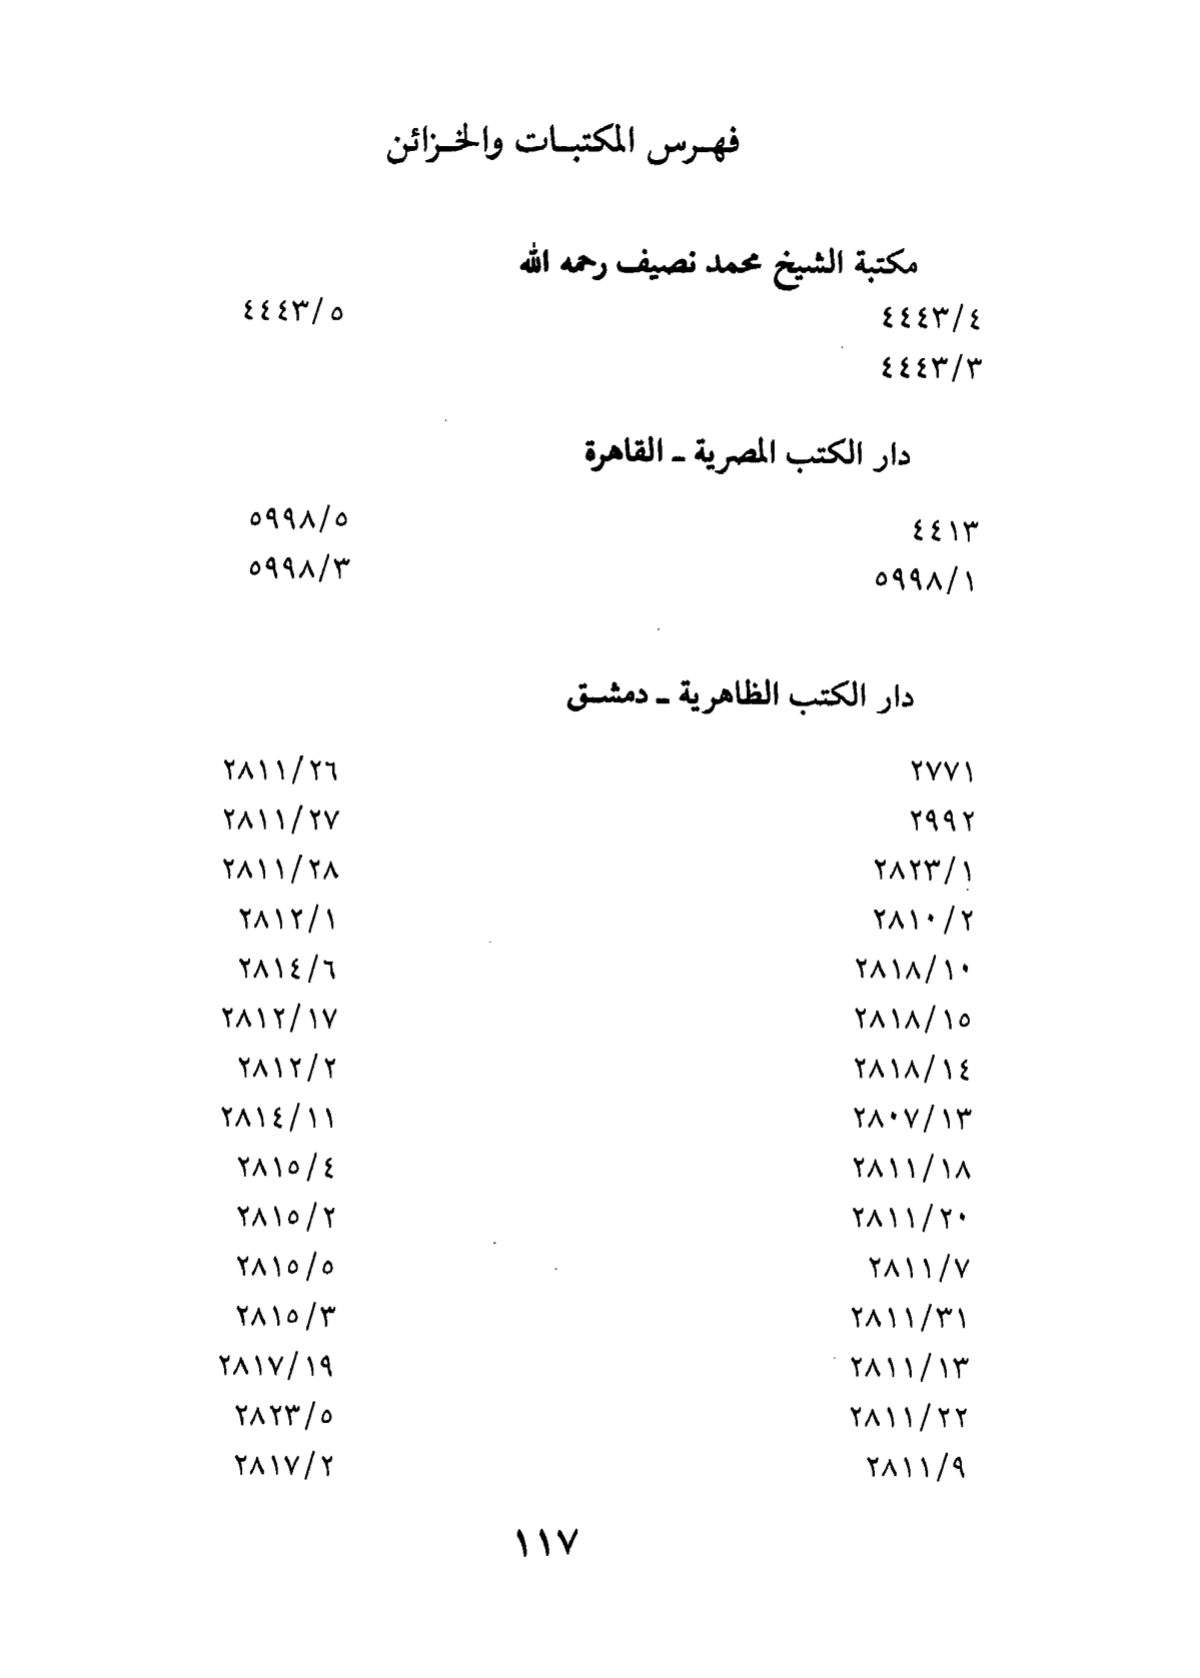 فهرس المكتبات والخزائن
مكتبة الشيخ محمد نصيف رحمه الله
٤٤٤٣/٤ ٤٤٤٣/٥
٤٤٤٣/٣
دار الكتب المصرية ـ القاهرة
٤٤١٣ ٥٩٩٨/٥
٥٩٩٨/١ ٥٩٩٨/٣
دار الكتب الظاهرية ـ دمشق
٢٧٧١ ٢٨١١/٢٦
٢٩٩٢ ٢٨١١/٢٧
٢٨٢٣/١ ٢٨١١/٢٨
٢٨١٠/٢ ٢٨١٢/١
٢٨١٨/١٠ ٢٨١٤/٦
٢٨١٨/١٥ ٢٨١٢/١٧
٢٨١٨/١٤ ٢٨١٢/٢
٢٨٠٧/١٣ ٢٨١٤/١١
٢٨١١/١٨ ٢٨١٥/٤
٢٨١١/٢٠ ٢٨١٥/٢
٢٨١١/٧ ٢٨١٥/٥
٢٨١١/٣١ ٢٨١٥/٣
٢٨١١/١٣ ٢٨١٧/١٩
٢٨١١/٢٢ ٢٨٢٣/٥
٢٨١١/٩ ٢٨١٧/٢
١١٧